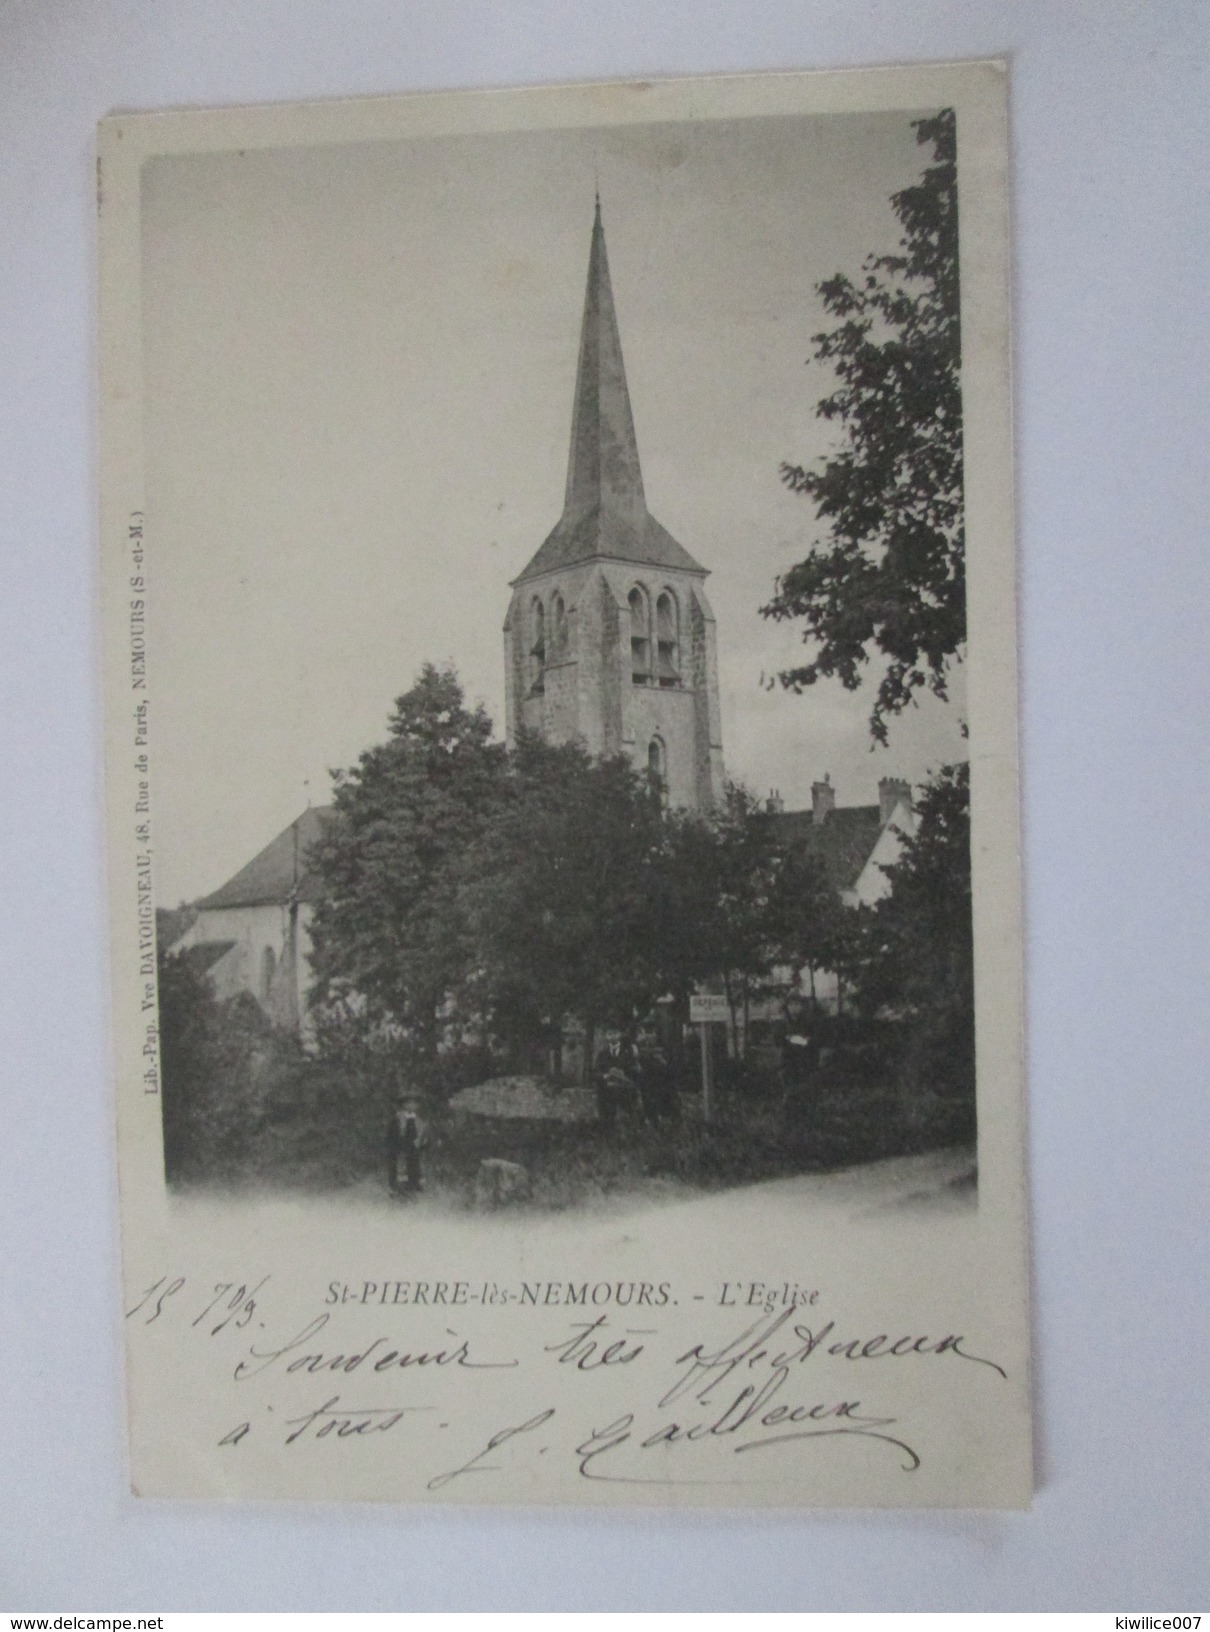 Lib.-Pap. Vve DAVOIGNEAU, 48. Rue de Paris, NEMOURS (S-et-M.)
St-PIERRE-lès-NEMOURS. - L'Eglise
Souvenir très affectueux
à tous.
www.delcampe.net
kiwilice007